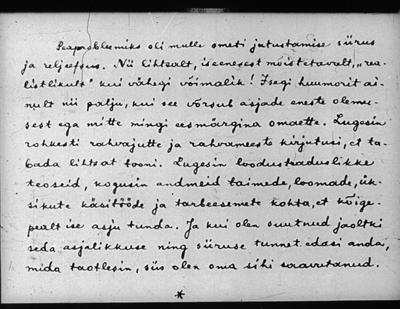 Peaprobleemiks oli mulle ometi jutustamise siirus
ja reljeefsus. Nii lihtsalt, iseenesest mõistetavalt, „rea-
listlikult" kui vähegi võimalik! Isegi huumorit ai-
nult nii palju, kui see võrsub asjade eneste olemu-
sest ega mitte mingi eesmärgina omaette. Lugesin
rohkesti rahvajutte ja rahvameeste kirjutusi, et ta-
bada lihtsat tooni. Lugesin loodusteaduslikke
teoseid, kogusin andmeid taimede, loomade, ük-
sikute käsitööde ja tarbeesemete kohta, et kõige-
pealt ise asju tunda. Ja kui olen suutnud jaoltki
seda asjalikkuse ning siiruse tunnet edasi anda,
mida taotlesin, siis olen oma sihi saavutanud.
*